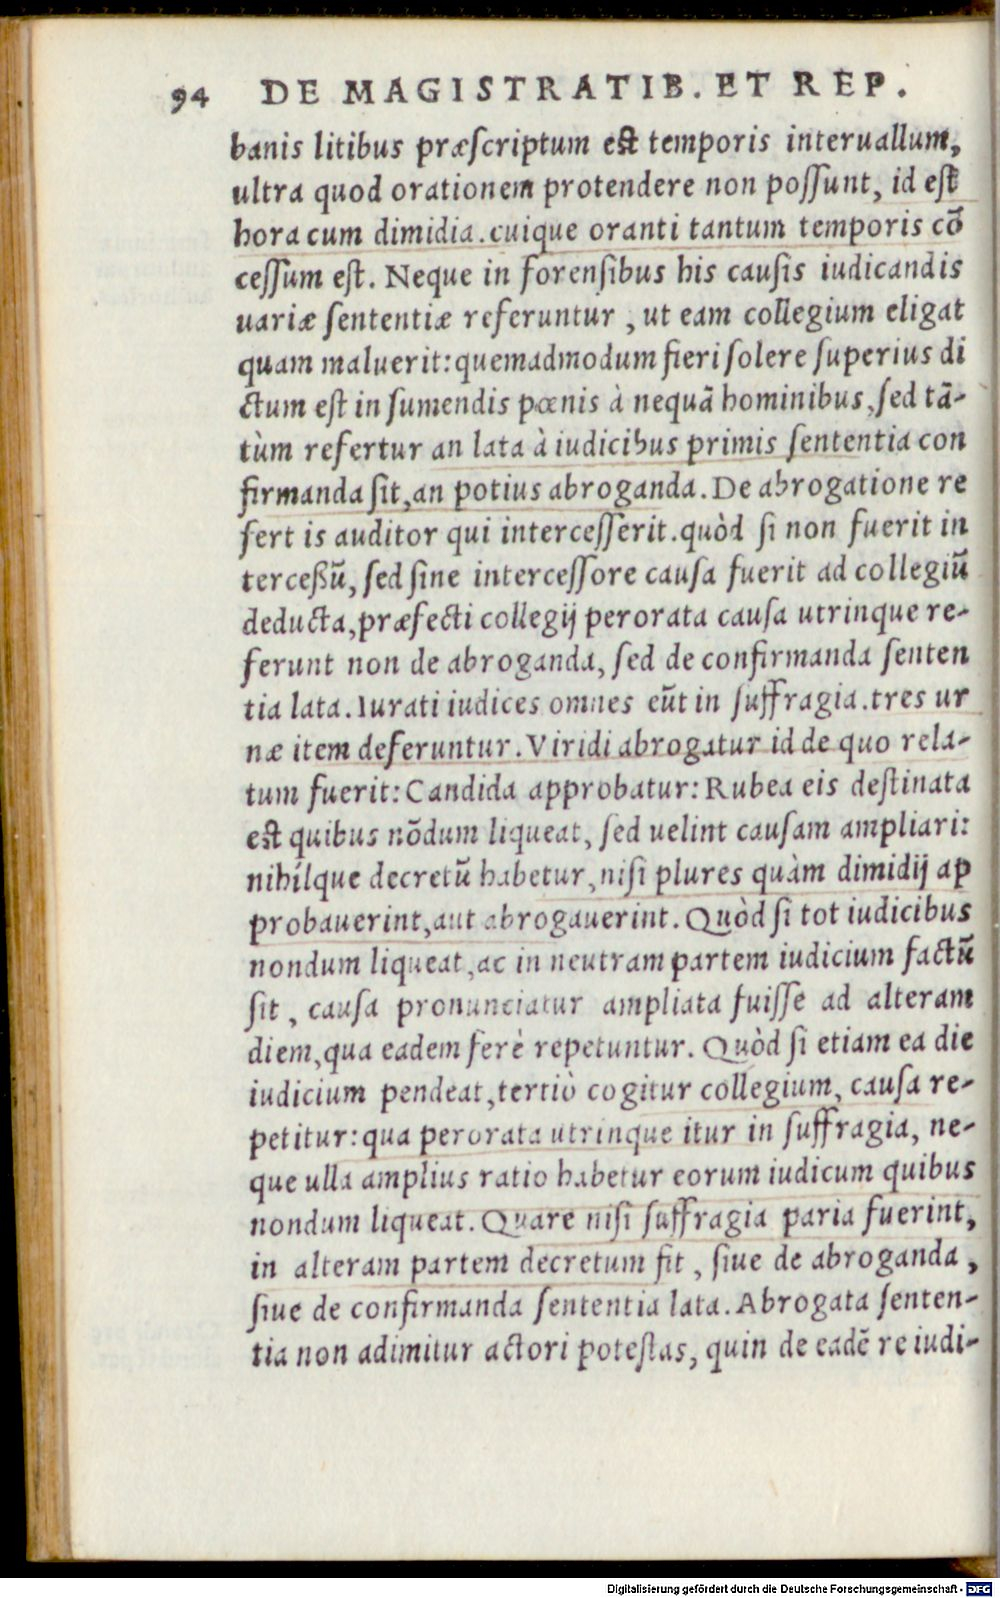 94 DE MAGISTRATIB. ET REP.
banis litibus præſcriptum eſt temporis interuallum,
ultra quod orationem protendere non poſſunt, id eſt
hora cum dimidia. cuique oranti tantum temporis cō
ceſſum eſt. Neque in forenſibus his cauſis iudicandis
uariæ ſententiæ referuntur, ut eam collegium eligat
quam maluerit: quemadmodum fieri ſolere ſuperius di
ctum eſt in ſumendis pœnis à nequā hominibus, ſed tā-
tùm refertur an lata à iudicibus primis ſententia con
firmanda ſit, an potius abroganda. De abrogatione re
fert is auditor qui interceſſerit. quòd ſi non fuerit in
terceßū, ſed ſine interceſſore cauſa fuerit ad collegiū
deducta, præfecti collegij perorata cauſa utrinque re-
ferunt non de abroganda, ſed de confirmanda ſenten
tia lata. Iurati iudices omnes eūt in ſuffragia. tres ur
næ item deferuntur. Viridi abrogatur id de quo rela-
tum fuerit: Candida approbatur: Rubea eis deſtinata
eſt quibus nōdum liqueat, ſed uelint cauſam ampliari:
nihílque decretū habetur, niſi plures quàm dimidij ap
probauerint, aut abrogauerint. Quòd ſi tot iudicibus
nondum liqueat, ac in neutram partem iudicium factū
ſit, cauſa pronunciatur ampliata fuiſſe ad alteram
diem, qua eadem ferè repetuntur. Quòd ſi etiam ea die
iudicium pendeat, tertiò cogitur collegium, cauſa re-
petitur: qua perorata utrinque itur in ſuffragia, ne-
que ulla amplius ratio habetur eorum iudicum quibus
nondum liqueat. Quare niſi ſuffragia paria fuerint,
in alteram partem decretum fit, ſiue de abroganda,
ſiue de confirmanda ſententia lata. Abrogata ſenten-
tia non adimitur actori poteſtas, quin de eadē re iudi-
Digitalisierung gefördert durch die Deutsche Forschungsgemeinschaft - DFG